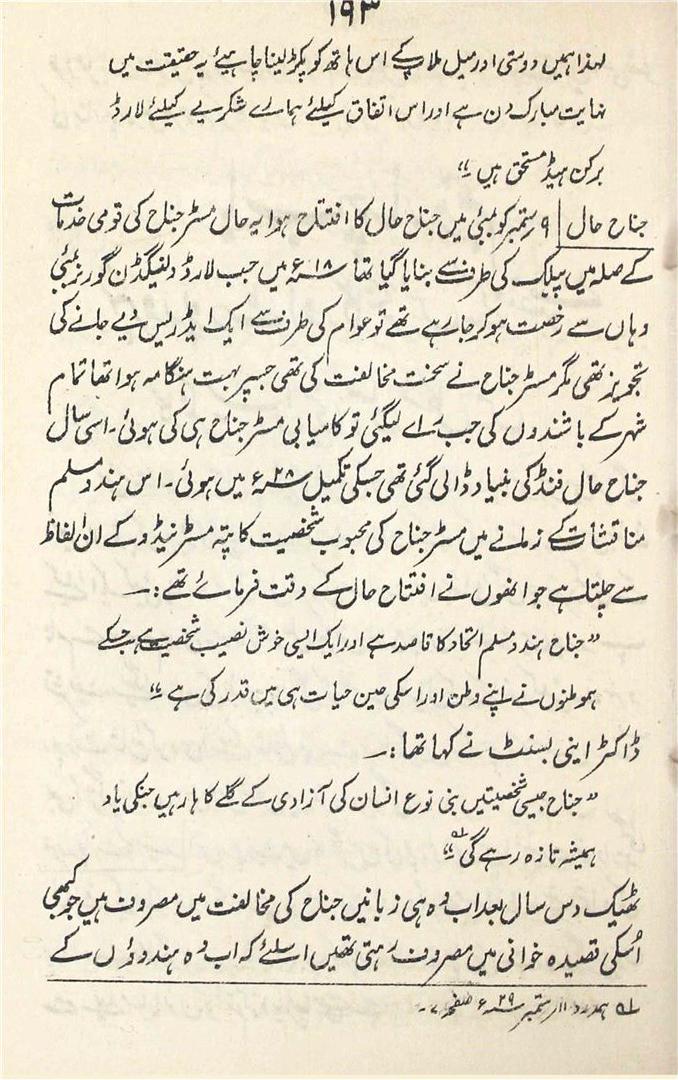 ۱۹۳
لہذا ہمیں دوستی اور میل ملاپ کے اس ہاتھ کو پکڑ لینا چاہیے یہ حقیقت میں
نہایت مبارک دن ہے اور اس اتفاق کیلئے ہمارے شکریے کیلئے لارڈ
برکن ہیڈ مستحق ہیں ؎"
جناح حال | ۹ ستمبر کو بمبئی میں جناح حال کا افتتاح ہوا یہ حال مسٹر جناح کی قومی خدمات
کے صلہ میں پبلک کی طرف سے بنایا گیا تھا ۱۸ء میں جب لارڈ ولنگڈن گورنر بمبئی
وہاں سے رخصت ہو کر جا رہے تھے تو عوام کی طرف سے ایک ایڈریس دیے جانے کی
تجویز تھی مگر مسٹر جناح نے سخت مخالفت کی تھی جسپر بہت ہنگامہ ہوا تھا تمام
شہر کے باشندوں کی جب راے لیگئی تو کامیابی مسٹر جناح ہی کی ہوئی۔ اسی سال
جناح حال فنڈ کی بنیاد ڈالی گئی تھی جسکی تکمیل ۲۸ء میں ہوئی۔ اس ہندو مسلم
مناقشات کے زمانے میں مسٹر جناح کی محبوب شخصیت کا پتہ مسٹر نیڈو کے ان الفاظ
سے چلتا ہے جو انھوں نے افتتاح حال کے وقت فرمائے تھے:۔
"جناح ہندو مسلم اتحاد کا قاصد ہے اور ایک ایسی خوش نصیب شخصیت ہے جسکے
ہموطنوں نے اپنے وطن اور اسکی عین حیات ہی میں قدر کی ہے ؎"
ڈاکٹر اینی بسنٹ نے کہا تھا:۔
"جناح جیسی شخصیتیں بنی نوع انسان کی آزادی کے گلے کا ہار ہیں جنکی یاد
ہمیشہ تازہ رہے گی ؎" لہ
ٹھیک دس سال بعد اب وہ ہی زبانیں جناح کی مخالفت میں مصروف ہیں جو کبھی
اُسکی قصیدہ خوانی میں مصروف رہتی تھیں اسلئے کہ اب وہ ہندوؤں کے
لہ ہمدرد ۱۱ ستمبر ۲۹ء صفحہ ۷۔